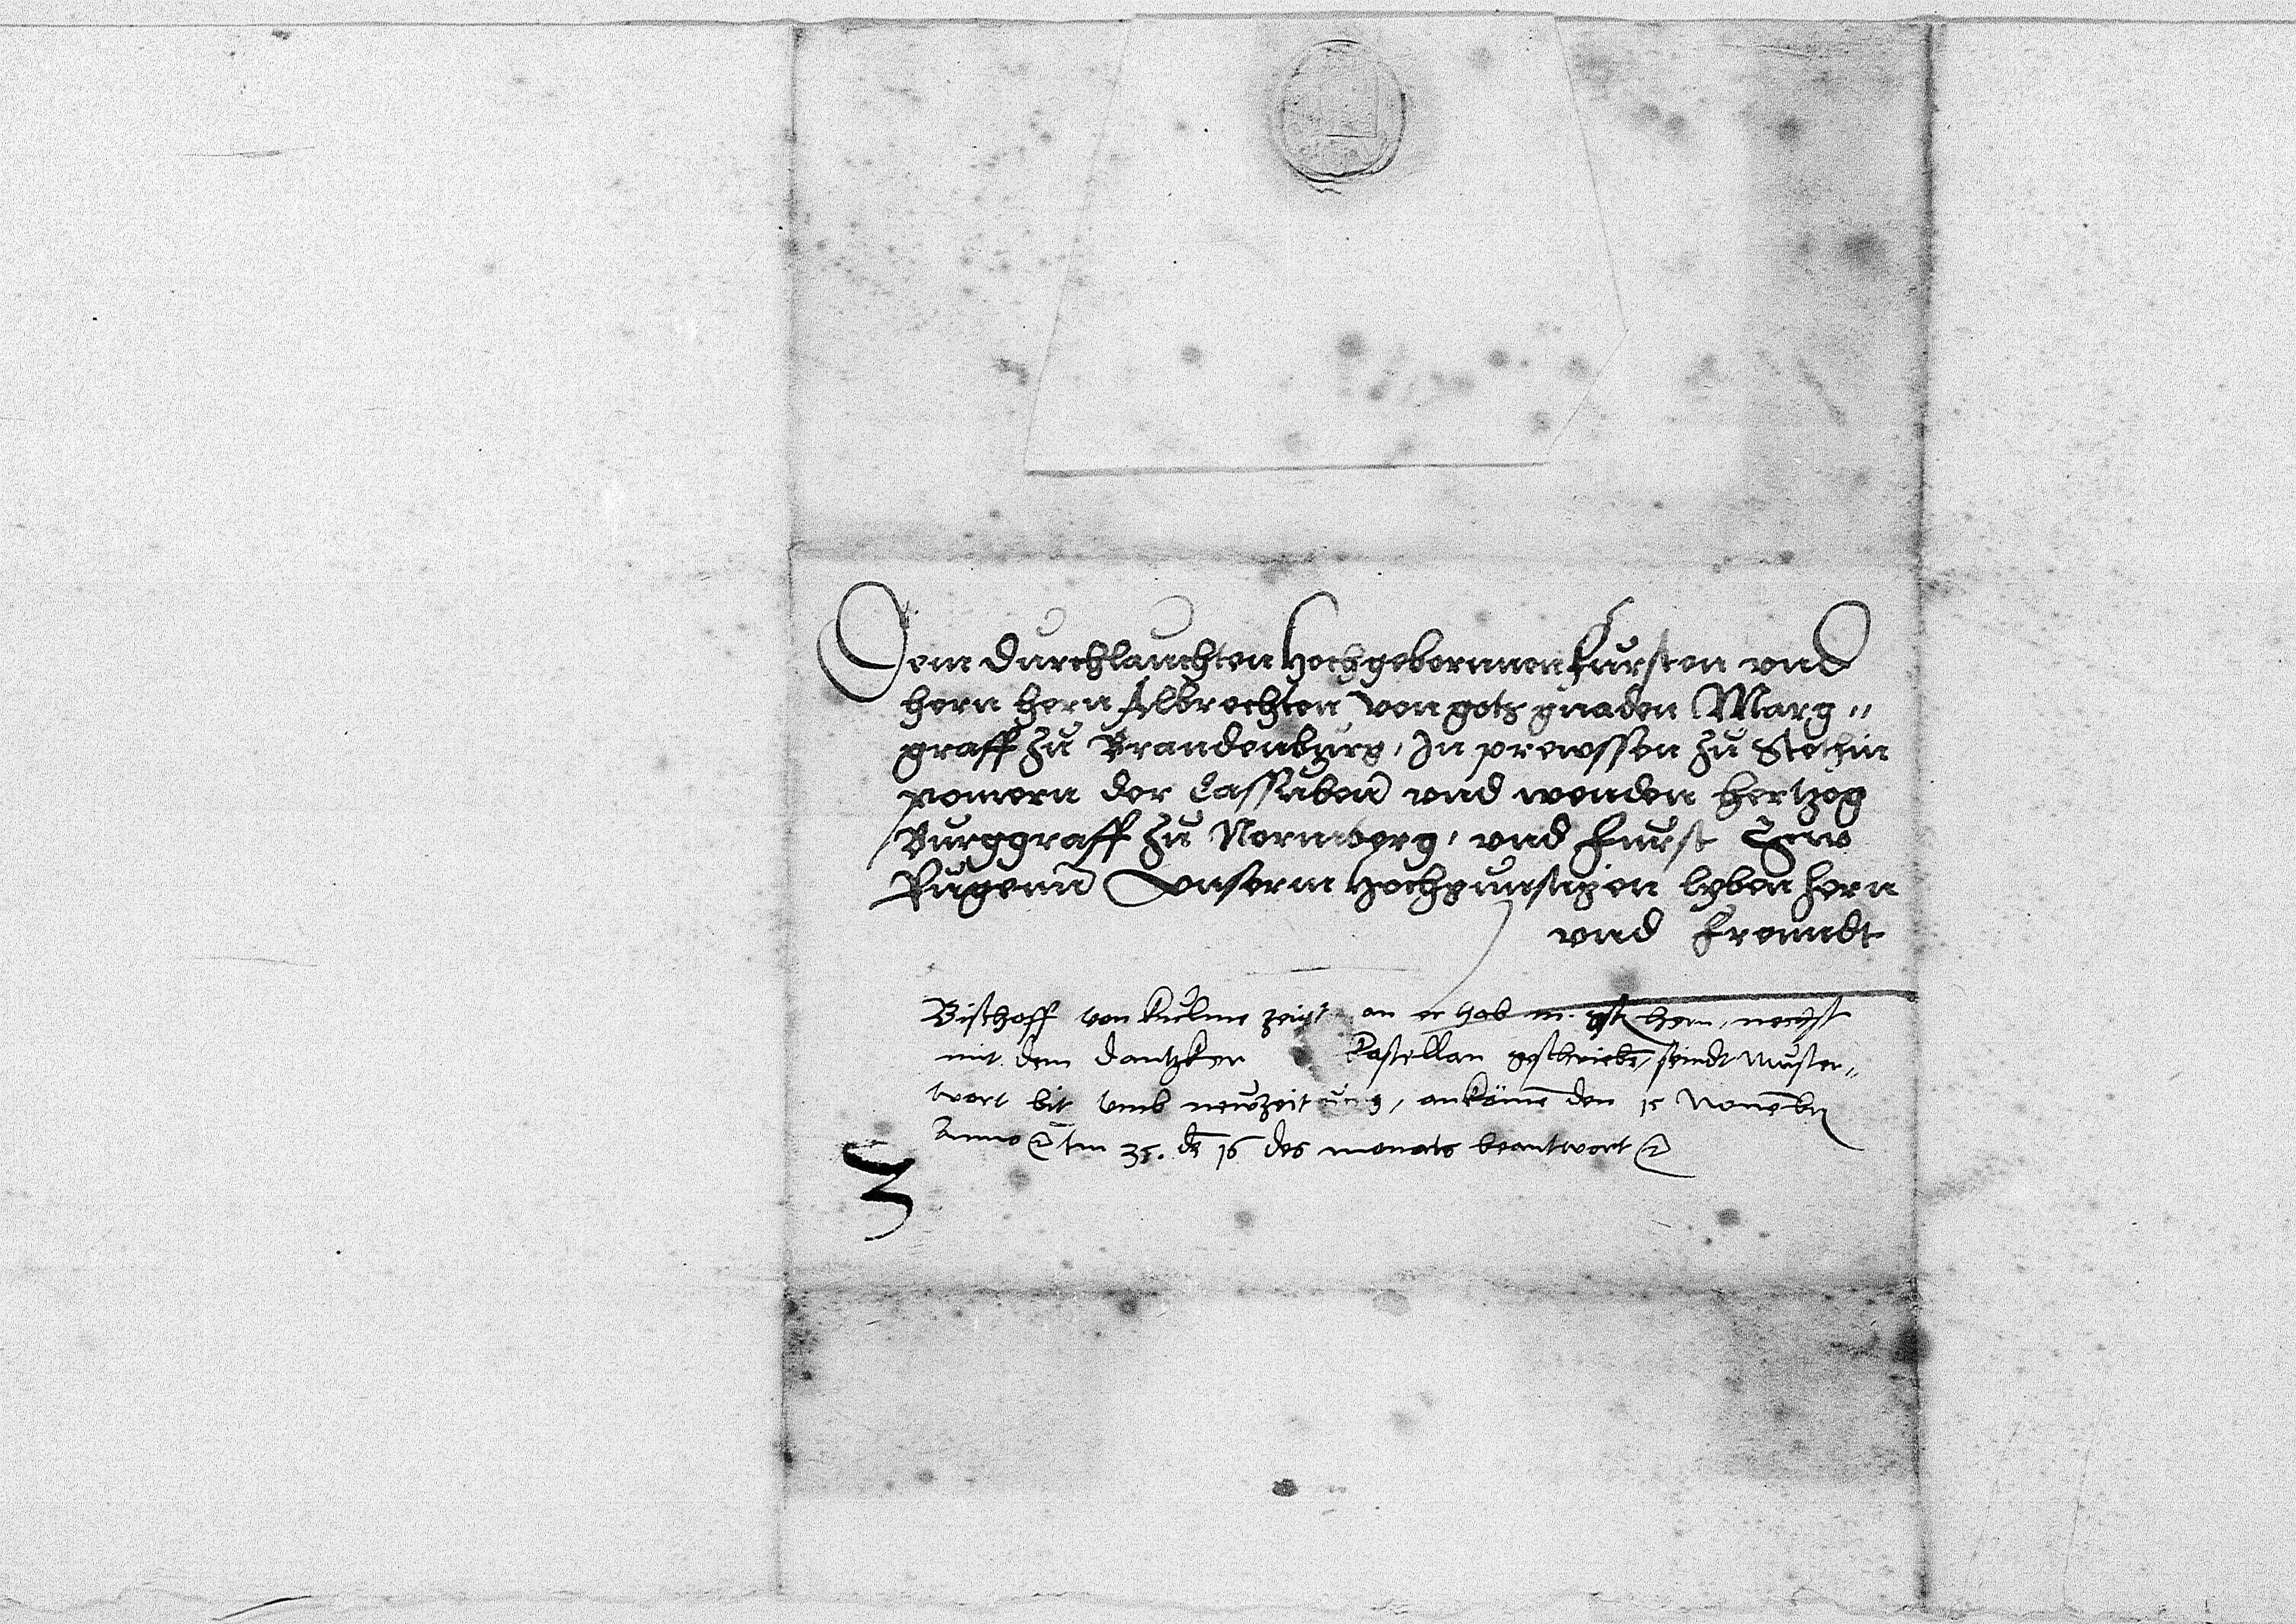 Dem durchlauchten hochgebornnen fursten vnd
hern hern Albrechten von gots gnaden Marg„
graff zu Brandenburg, In prewssen zu Stethin
pomern der Cassuben vnd wenden hertzog
Burggraff zu Nornberg, vnd furst Zcw
Rugenn Vnserm hochgunstigen lyben hern
vnd freundt
Bischoff von Kulme zeigt an er hab m. gst hern, nechst
mit dem Dantzker Kastellan geschriebē, seindt
wort bit vmb newzeittung, ankōme den 15 Nouēbr
Anno &c im 35. dē 16 des monats beantwort &c